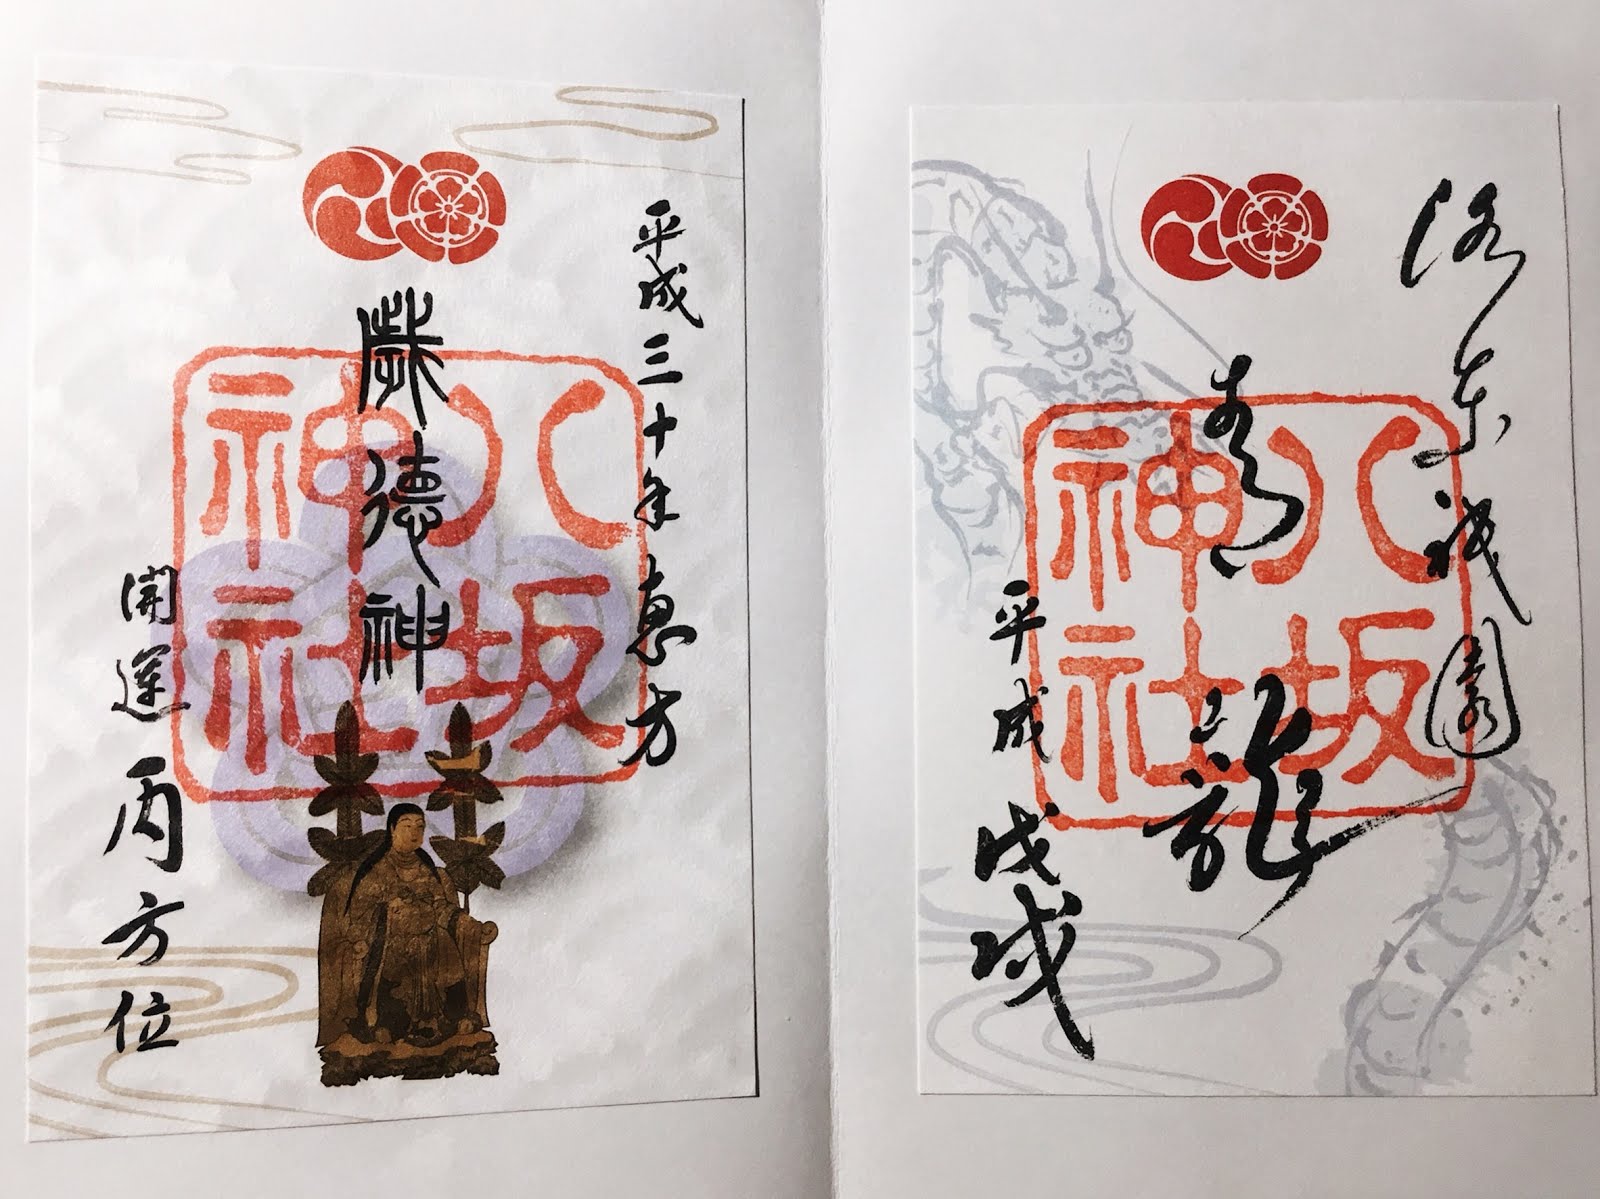 洛東祇園
青龍
八坂
神社
平成戊戌
平成三十年恵方
歳徳神
八坂
神社
開運丙方位